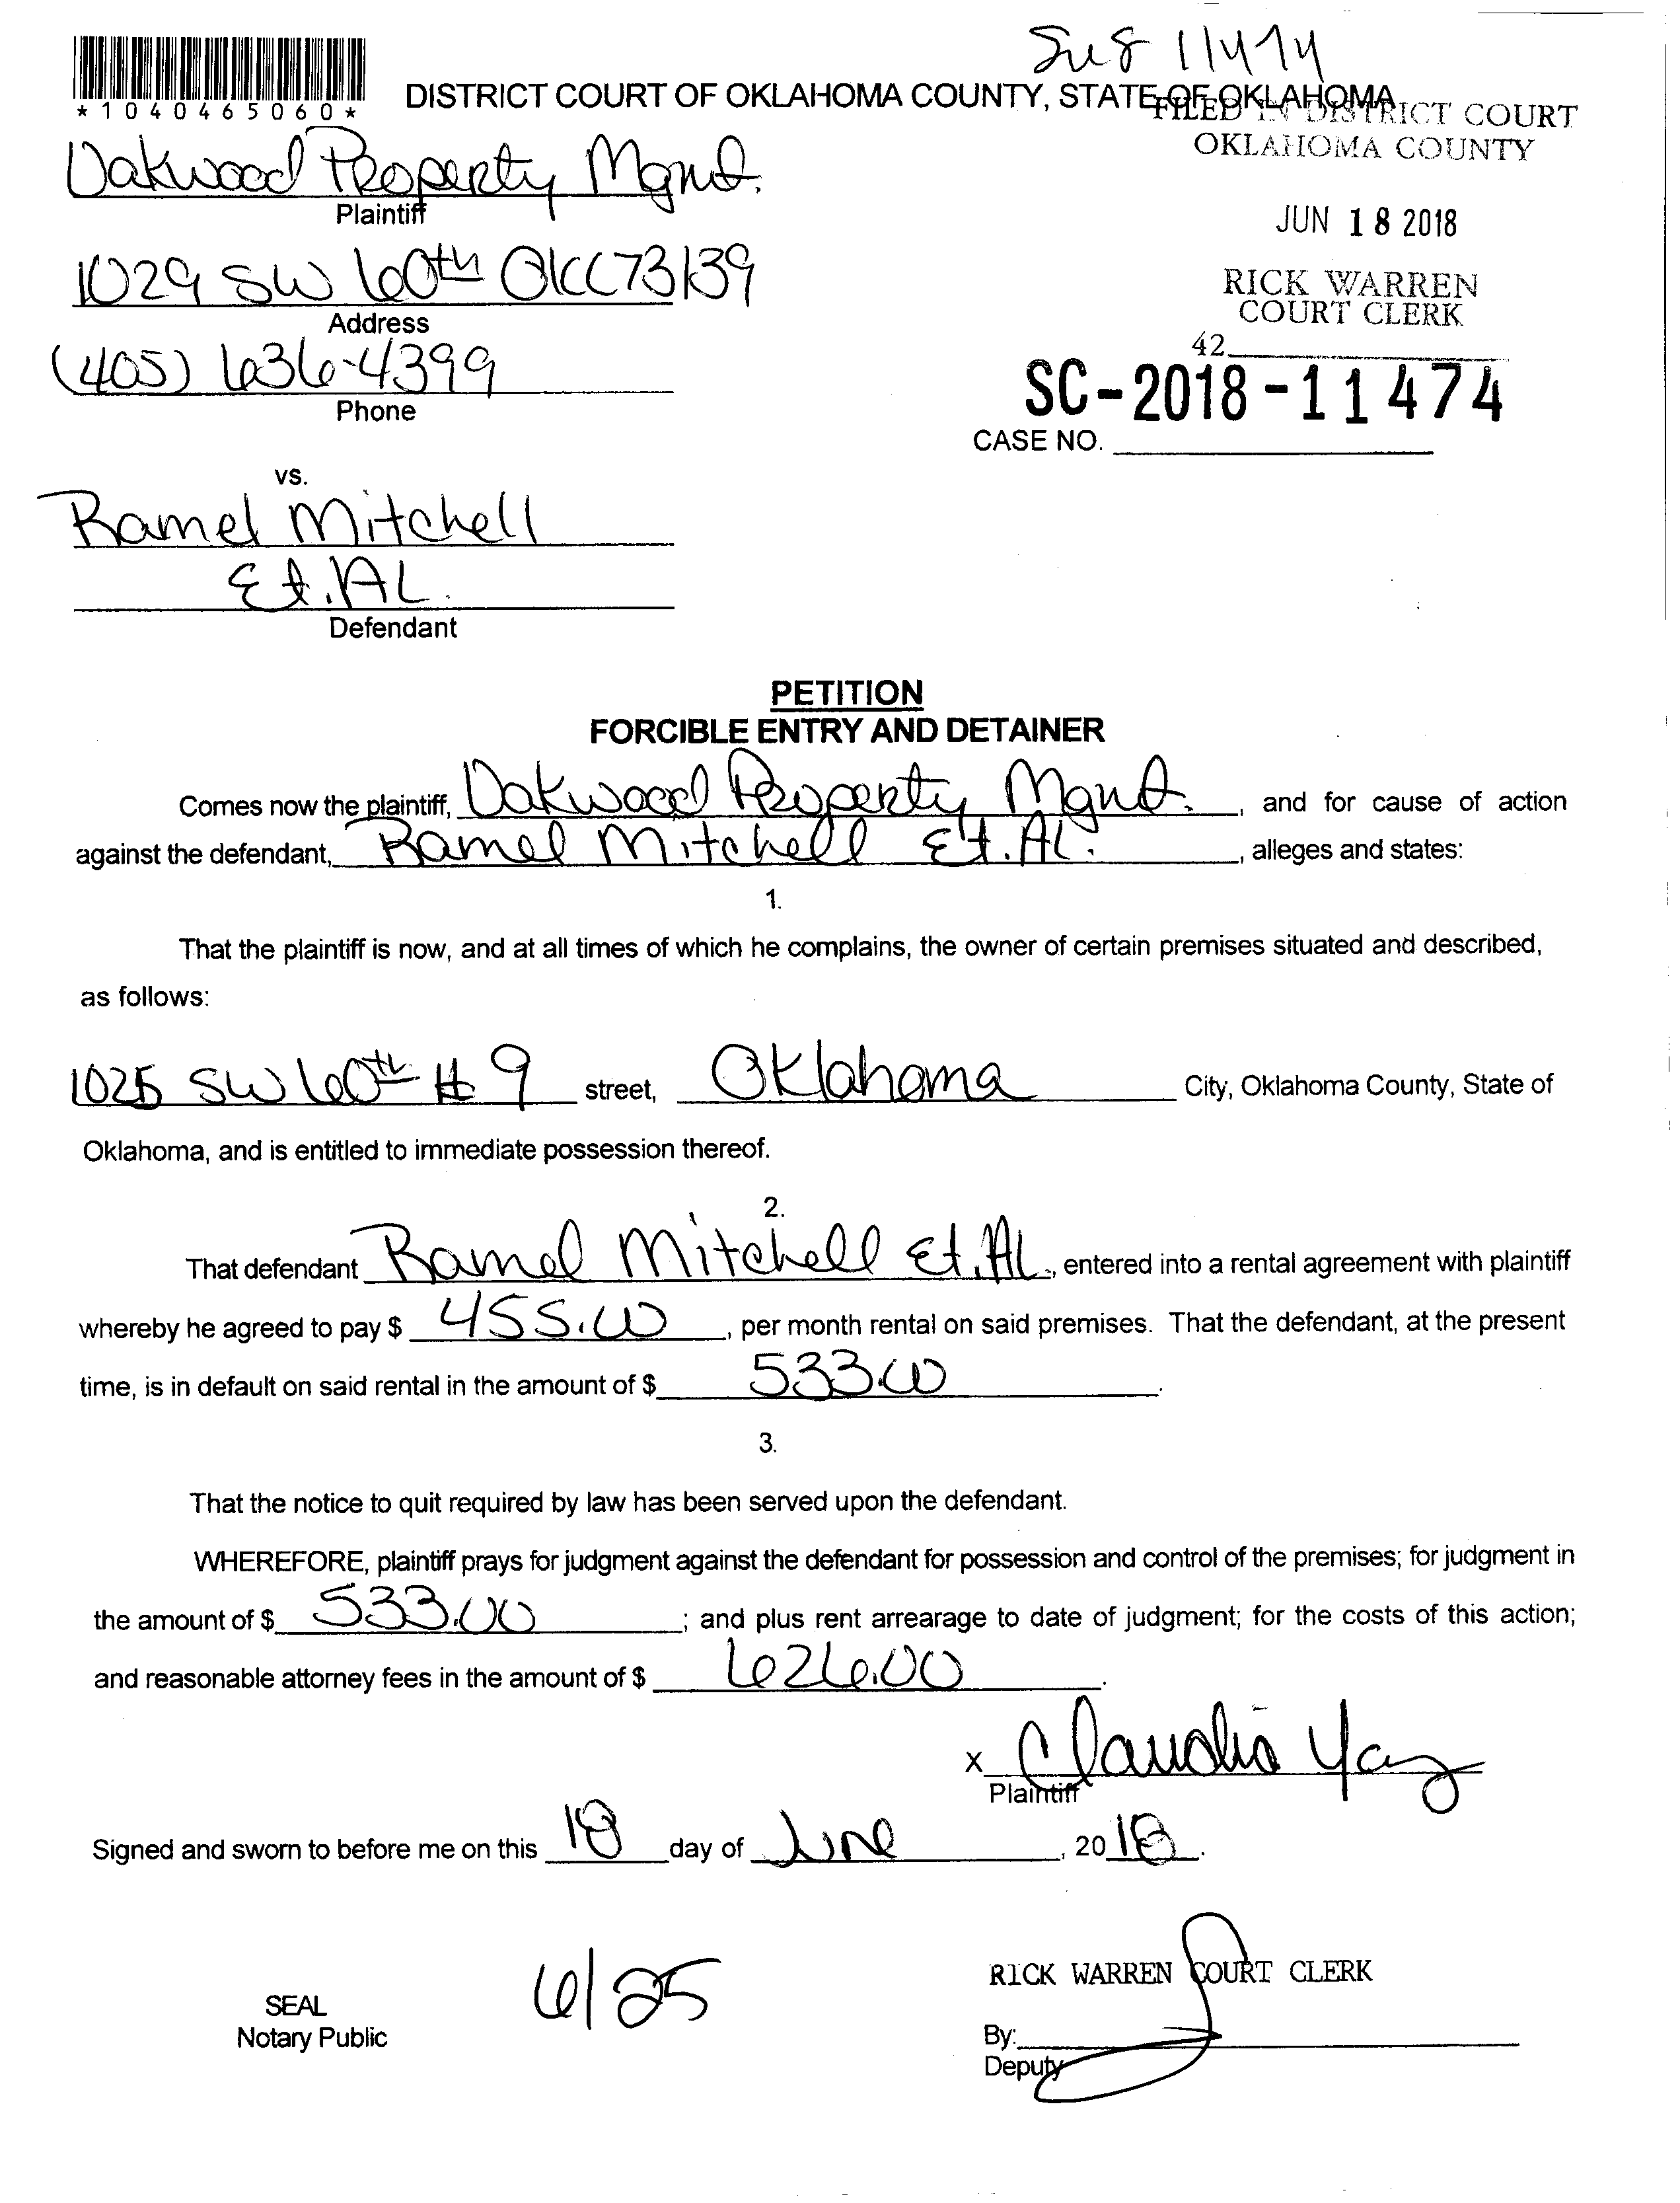 11474
*1040465060*
DISTRICT COURT OF OKLAHOMA COUNTY, STATE OF OKLAHOMA
FILED IN DISTRICT COURT
OKLAHOMA COUNTY
Oakwood Property Mgmt.
Plaintiff
JUN 18 2018
1029 SW 60th OKC 73139
Address
RICK WARREN
COURT CLERK
(405) 636-4399
Phone
42
SC-2018-11474
CASE NO.
vs.
Ramel Mitchell
Et. AL.
Defendant
PETITION
FORCIBLE ENTRY AND DETAINER
Comes now the plaintiff, Oakwood Property Mgmt. , and for cause of action
against the defendant, Ramel Mitchell Et. AL. , alleges and states:
1.
That the plaintiff is now, and at all times of which he complains, the owner of certain premises situated and described,
as follows:
1025 SW 60th # 9 street, Oklahoma City, Oklahoma County, State of
Oklahoma, and is entitled to immediate possession thereof.
2.
That defendant Ramel Mitchell Et. AL. , entered into a rental agreement with plaintiff
whereby he agreed to pay $ 455.00 , per month rental on said premises. That the defendant, at the present
time, is in default on said rental in the amount of $ 533.00 .
3.
That the notice to quit required by law has been served upon the defendant.
WHEREFORE, plaintiff prays for judgment against the defendant for possession and control of the premises; for judgment in
the amount of $ 533.00 ; and plus rent arrearage to date of judgment; for the costs of this action;
and reasonable attorney fees in the amount of $ 626.00 .
X Claudia
Plaintiff
Signed and sworn to before me on this 18 day of June , 20 18 .
6/25
RICK WARREN COURT CLERK
SEAL
Notary Public
By:
Deputy